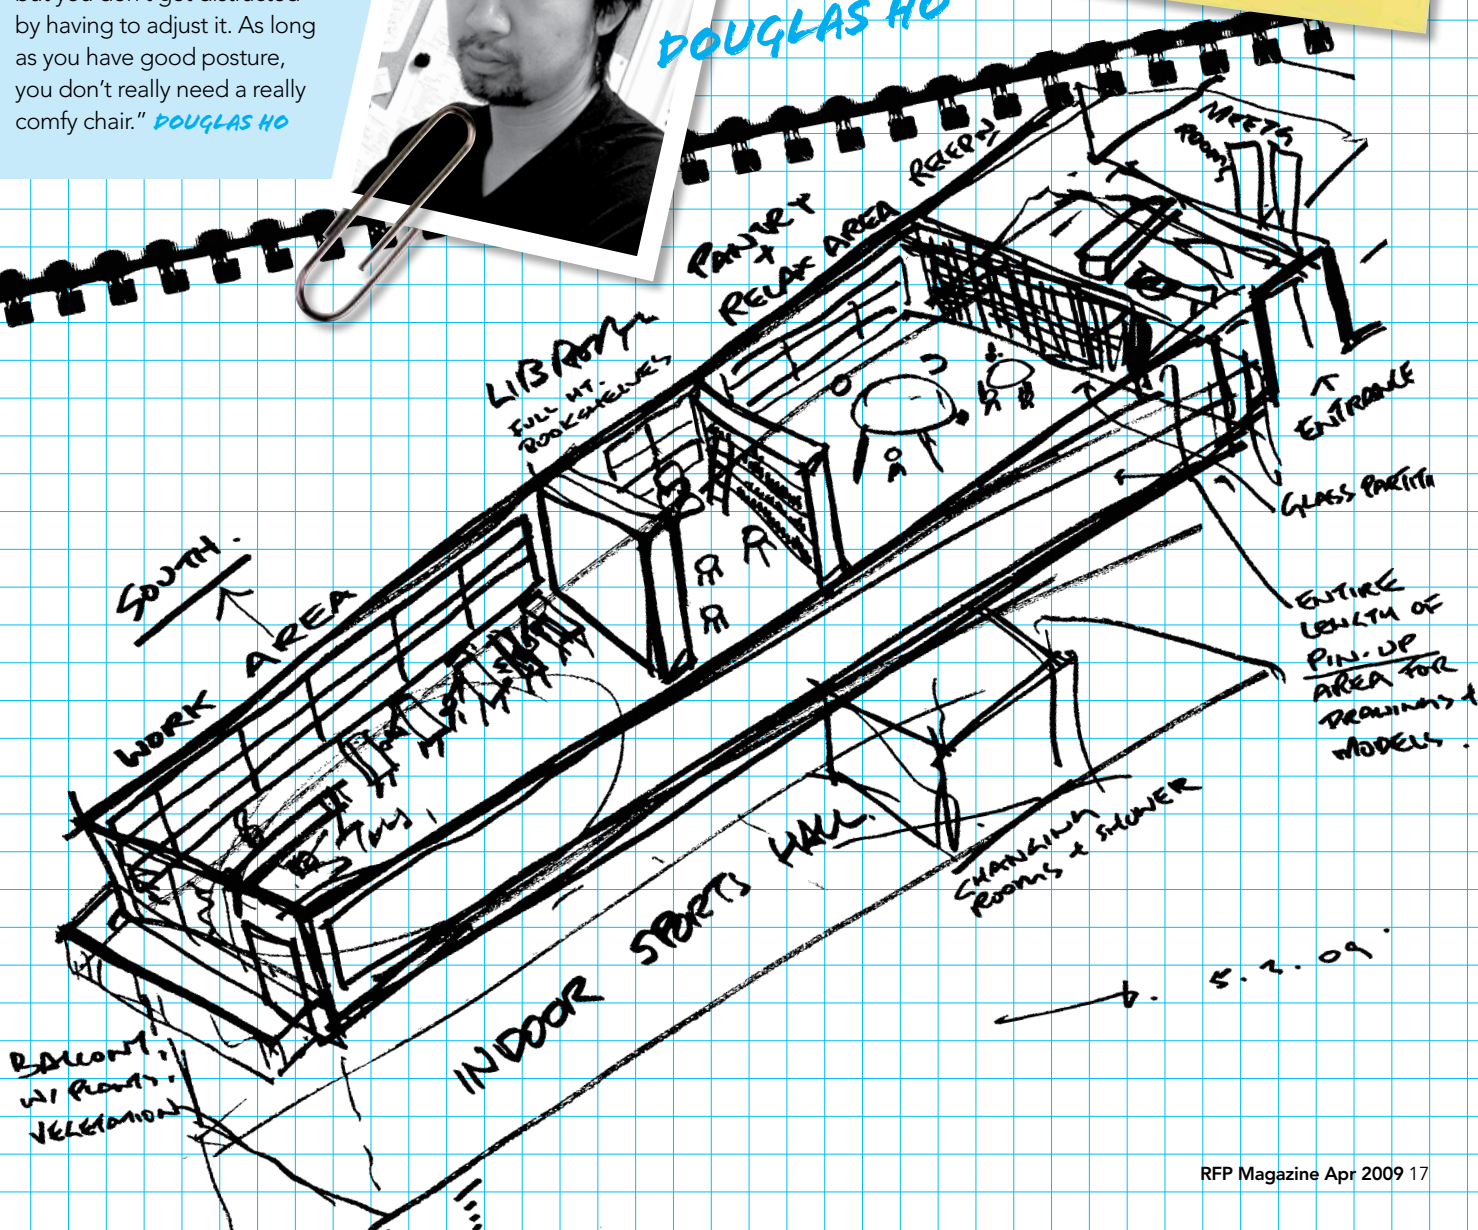 but you don't get distracted
by having to adjust it. As long
as you have good posture,
you don't really need a really
comfy chair." DOUGLAS HO
DOUGLAS HO
MEETG
ROOMS
PANTRY
+
RELAX AREA
LIBRARY
FULL HT.
BOOKSHELVES
ENTRANCE
GLASS PARTITN
SOUTH.
WORK AREA
ENTIRE
LENGTH OF
PIN-UP
AREA FOR
DRAWINGS +
MODELS.
CHANGING
ROOMS + SHOWER
INDOOR SPORTS HALL.
BALCONY,
W/ PLANTS,
VEGETATION
RFP Magazine Apr 2009 17